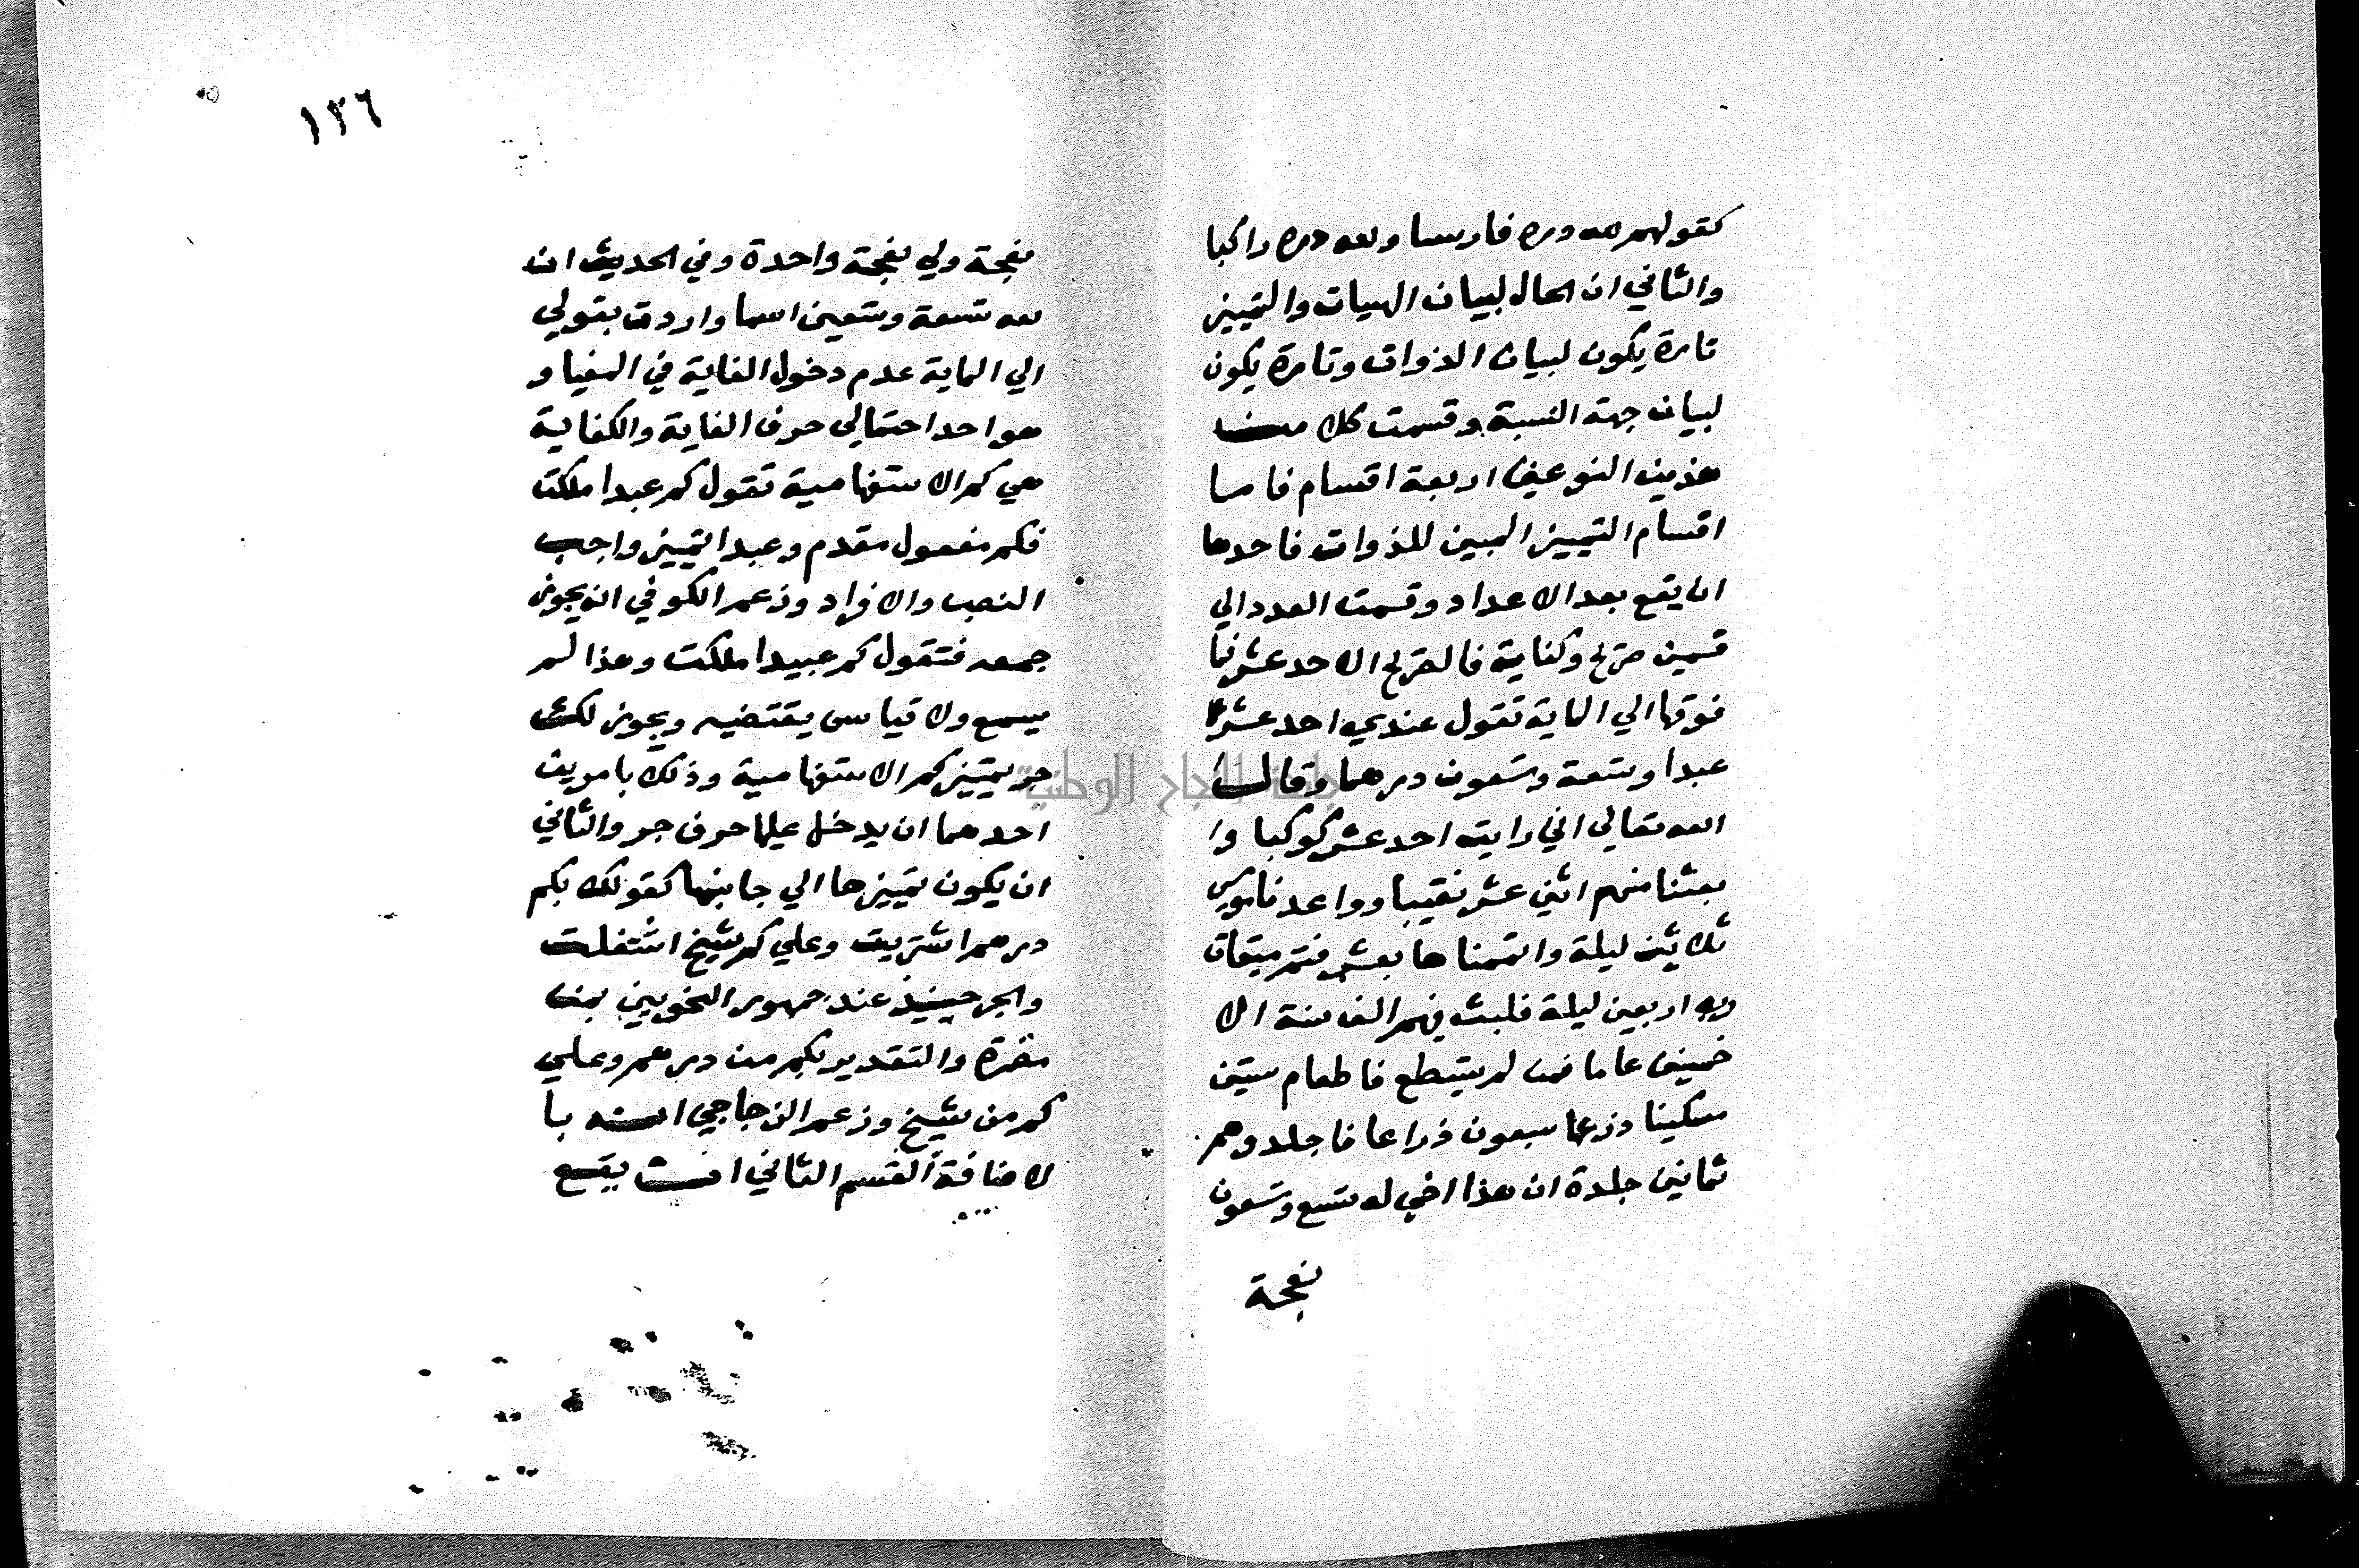 كقولهم لله دره فارسا ولله دره راكبا
والثاني ان الحال لبيان الهيات والتمييز
تارة يكون لبيان الذوات وتارة يكون
لبيان جهة النسبة وقسمت كلا من
هذين النوعين اربعة اقسام فاما
اقسام التمييز المبين للذوات فاحدها
ان يقع بعد الاعداد وقسمت العدد الي
قسمين صريح وكناية فالصريح الاحد عشر فيا
فوقها الي الماية تقول عندي احد عشر
عبدا وتسعة وتسعون درهما وقال
الله تعالي اني رايت احد عشر كوكبا وا
بعثنا منهم اثني عشر نقيبا وواعدنا موسي
ثلاثين ليلة واتممناها بعشر فتم ميقات
ربه اربعين ليلة فلبث فيهم الف سنة الا
خمسين عاما فمن لم يستطع فاطعام ستين
مسكينا ذرعها سبعون ذراعا فاجلدوهم
ثمانين جلدة ان هذا اخي له تسع وتسعون
نعجة
١٣٦
نعجة ولي نعجة واحدة وفي الحديث ان
لله تسعة وتسعين اسما واردت بقولي
الي الماية عدم دخول الغاية في المغيا و
هو احد احتمالي حرف الغاية والكفاية
هي كم الاستفهامية تقول كم عبدا ملكت
فكم مفعول مقدم وعبدا تمييز واجب
النصب والافراد وزعم الكوفي انه يجوز
جمعه فتقول كم عبيدا ملكت وهذا لم
يسمع ولا قياس يقتضيه ويجوز لك
جر تمييز كم الاستفهامية وذلك بامرين
احدهما ان يدخل عليها حرف جر والثاني
ان يكون تمييزها الي جانبها كقولك بكم
درهم اشتريت وعلي كم شيخ اشتغلت
والجر حينيذ عند جمهور النحويين بمن
مضمرة والتقدير بكم من درهم وعلي
كم من شيخ وزعم الزجاجي انه با
لاضافة القسم الثاني ان يقع
جامعة النجاح الوطنية